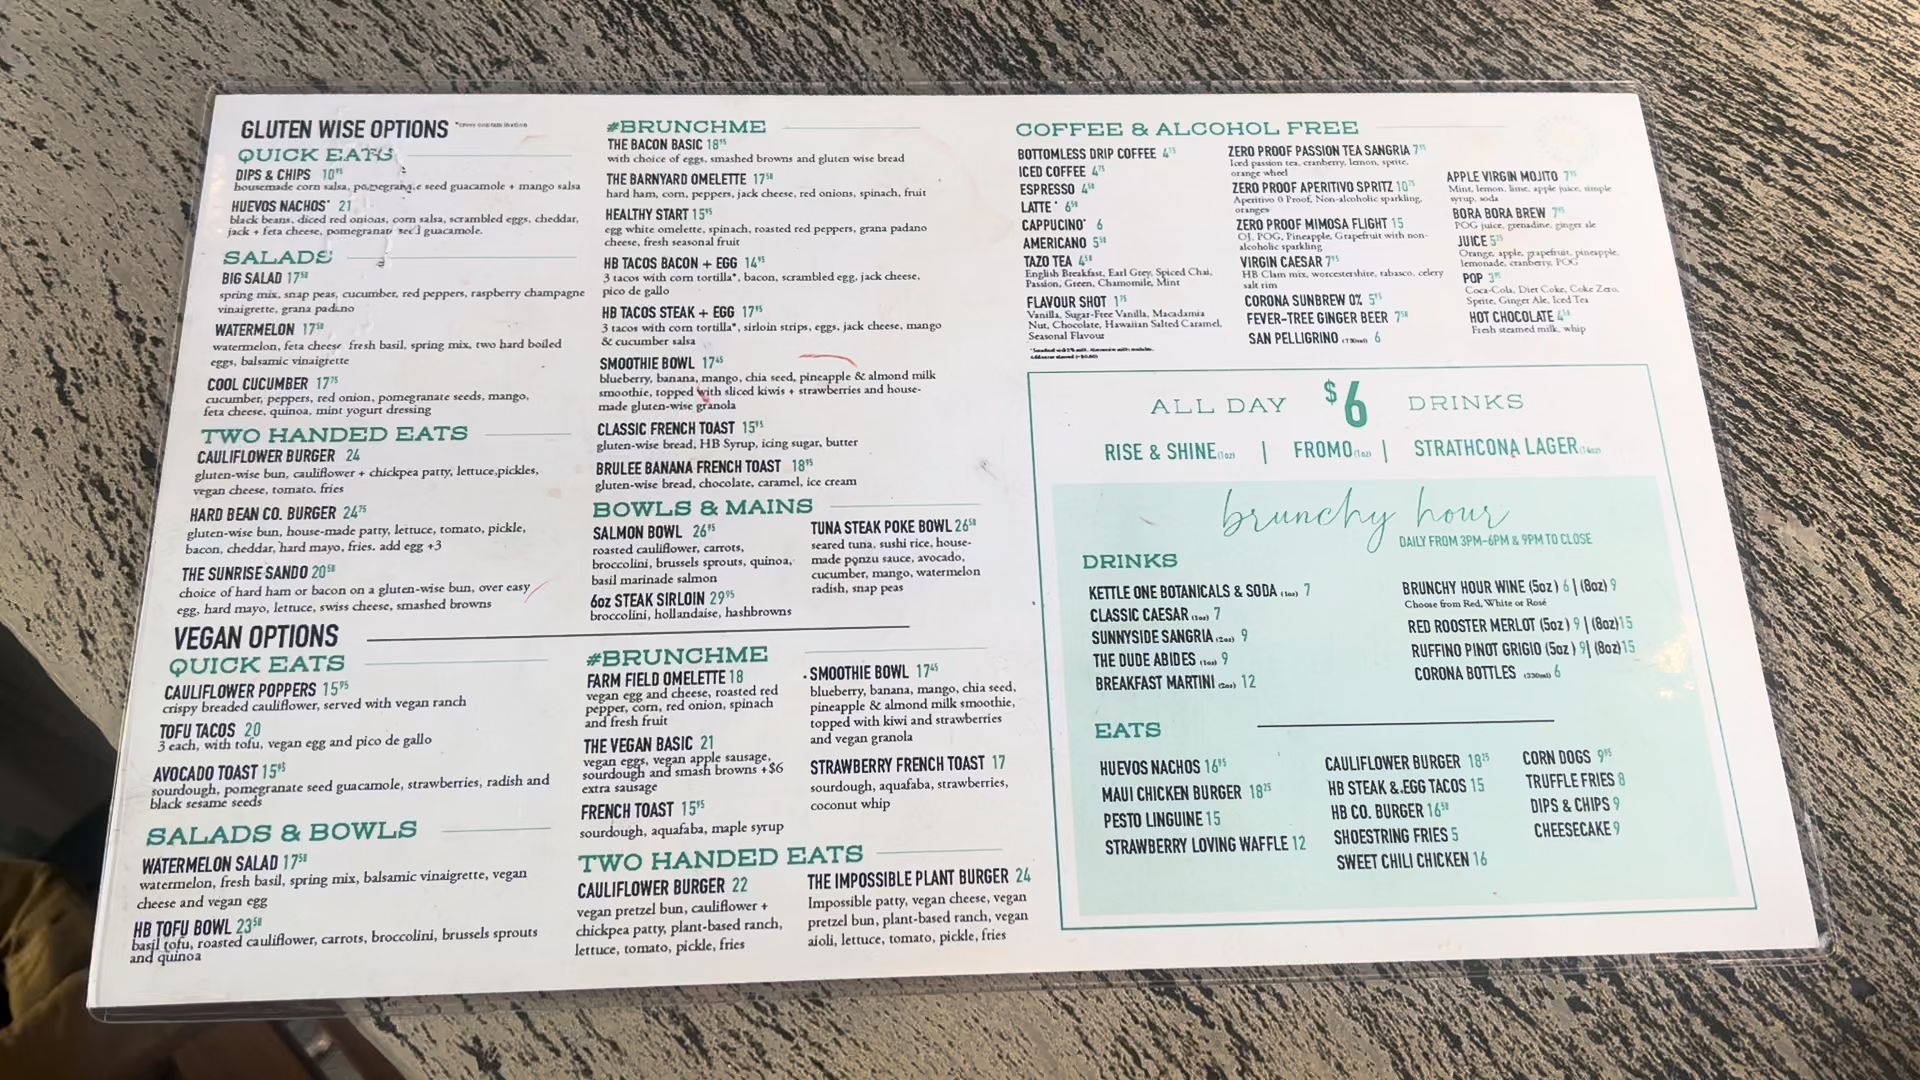 GLUTEN WISE OPTIONS *cross contamination
QUICK EATS
DIPS & CHIPS 10⁹⁵
housemade corn salsa, pomegranate seed guacamole + mango salsa
HUEVOS NACHOS* 21
black beans, diced red onions, corn salsa, scrambled eggs, cheddar,
jack + feta cheese, pomegranate seed guacamole.
SALADS
BIG SALAD 17⁵⁰
spring mix, snap peas, cucumber, red peppers, raspberry champagne
vinaigrette, grana padano
WATERMELON 17⁵⁰
watermelon, feta cheese fresh basil, spring mix, two hard boiled
eggs, balsamic vinaigrette
COOL CUCUMBER 17⁷⁵
cucumber, peppers, red onion, pomegranate seeds, mango,
feta cheese, quinoa, mint yogurt dressing
TWO HANDED EATS
CAULIFLOWER BURGER 24
gluten-wise bun, cauliflower + chickpea patty, lettuce,pickles,
vegan cheese, tomato. fries
HARD BEAN CO. BURGER 24⁷⁵
gluten-wise bun, house-made patty, lettuce, tomato, pickle,
bacon, cheddar, hard mayo, fries. add egg +3
THE SUNRISE SANDO 20⁵⁰
choice of hard ham or bacon on a gluten-wise bun, over easy
egg, hard mayo, lettuce, swiss cheese, smashed browns
#BRUNCHME
THE BACON BASIC 18⁹⁵
with choice of eggs, smashed browns and gluten wise bread
THE BARNYARD OMELETTE 17⁵⁰
hard ham, corn, peppers, jack cheese, red onions, spinach, fruit
HEALTHY START 15⁹⁵
egg white omelette, spinach, roasted red peppers, grana padano
cheese, fresh seasonal fruit
HB TACOS BACON + EGG 14⁹⁵
3 tacos with corn tortilla*, bacon, scrambled egg, jack cheese,
pico de gallo
HB TACOS STEAK + EGG 17⁹⁵
3 tacos with corn tortilla*, sirloin strips, eggs, jack cheese, mango
& cucumber salsa
SMOOTHIE BOWL 17⁴⁵
blueberry, banana, mango, chia seed, pineapple & almond milk
smoothie, topped with sliced kiwis + strawberries and house-
made gluten-wise granola
CLASSIC FRENCH TOAST 15⁹⁵
gluten-wise bread, HB Syrup, icing sugar, butter
BRULEE BANANA FRENCH TOAST 18⁹⁵
gluten-wise bread, chocolate, caramel, ice cream
BOWLS & MAINS
SALMON BOWL 26⁹⁵
roasted cauliflower, carrots,
broccolini, brussels sprouts, quinoa,
basil marinade salmon
6oz STEAK SIRLOIN 29⁹⁵
broccolini, hollandaise, hashbrowns
TUNA STEAK POKE BOWL 26⁵⁰
seared tuna, sushi rice, house-
made ponzu sauce, avocado,
cucumber, mango, watermelon
radish, snap peas
VEGAN OPTIONS
QUICK EATS
CAULIFLOWER POPPERS 15⁹⁵
crispy breaded cauliflower, served with vegan ranch
TOFU TACOS 20
3 each, with tofu, vegan egg and pico de gallo
AVOCADO TOAST 15⁹⁵
sourdough, pomegranate seed guacamole, strawberries, radish and
black sesame seeds
SALADS & BOWLS
WATERMELON SALAD 17⁵⁰
watermelon, fresh basil, spring mix, balsamic vinaigrette, vegan
cheese and vegan egg
HB TOFU BOWL 23⁵⁰
basil tofu, roasted cauliflower, carrots, broccolini, brussels sprouts
and quinoa
#BRUNCHME
FARM FIELD OMELETTE 18
vegan egg and cheese, roasted red
pepper, corn, red onion, spinach
and fresh fruit
THE VEGAN BASIC 21
vegan eggs, vegan apple sausage,
sourdough and smash browns +$6
extra sausage
FRENCH TOAST 15⁹⁵
sourdough, aquafaba, maple syrup
SMOOTHIE BOWL 17⁴⁵
blueberry, banana, mango, chia seed,
pineapple & almond milk smoothie,
topped with kiwi and strawberries
and vegan granola
STRAWBERRY FRENCH TOAST 17
sourdough, aquafaba, strawberries,
coconut whip
TWO HANDED EATS
CAULIFLOWER BURGER 22
vegan pretzel bun, cauliflower +
chickpea patty, plant-based ranch,
lettuce, tomato, pickle, fries
THE IMPOSSIBLE PLANT BURGER 24
Impossible patty, vegan cheese, vegan
pretzel bun, plant-based ranch, vegan
aioli, lettuce, tomato, pickle, fries
COFFEE & ALCOHOL FREE
BOTTOMLESS DRIP COFFEE 4⁷⁵
ICED COFFEE 4⁷⁵
ESPRESSO 4⁵⁰
LATTE* 6⁵⁰
CAPPUCINO* 6
AMERICANO 5⁵⁰
TAZO TEA 4⁵⁰
English Breakfast, Earl Grey, Spiced Chai,
Passion, Green, Chamomile, Mint
FLAVOUR SHOT 1⁷⁵
Vanilla, Sugar-Free Vanilla, Macadamia
Nut, Chocolate, Hawaiian Salted Caramel,
Seasonal Flavour
ZERO PROOF PASSION TEA SANGRIA 7⁹⁵
Iced passion tea, cranberry, lemon, sprite,
orange wheel
ZERO PROOF APERITIVO SPRITZ 10⁷⁵
Aperitivo 0 Proof, Non-alcoholic sparkling,
oranges
ZERO PROOF MIMOSA FLIGHT 15
OJ, POG, Pineapple, Grapefruit with non-
alcoholic sparkling
VIRGIN CAESAR 7⁹⁵
HB Clam mix, worcestershire, tabasco, celery
salt rim
CORONA SUNBREW 0% 5⁹⁵
FEVER-TREE GINGER BEER 7⁵⁰
SAN PELLIGRINO (750ml) 6
APPLE VIRGIN MOJITO 7⁹⁵
Mint, lemon, lime, apple juice, simple
syrup, soda
BORA BORA BREW 7⁹⁵
POG juice, grenadine, ginger ale
JUICE 5²⁵
Orange, apple, grapefruit, pineapple,
lemonade, cranberry, POG
POP 3⁹⁵
Coca-Cola, Diet Coke, Coke Zero,
Sprite, Ginger Ale, Iced Tea
HOT CHOCOLATE 4⁵⁰
Fresh steamed milk, whip
ALL DAY $6 DRINKS
RISE & SHINE (1oz) | FROMO (1oz) | STRATHCONA LAGER (14oz)
brunchy hour
DAILY FROM 3PM-6PM & 9PM TO CLOSE
DRINKS
KETTLE ONE BOTANICALS & SODA (1oz) 7
CLASSIC CAESAR (1oz) 7
SUNNYSIDE SANGRIA (2oz) 9
THE DUDE ABIDES (1oz) 9
BREAKFAST MARTINI (2oz) 12
BRUNCHY HOUR WINE (5oz) 6 | (8oz) 9
Choose from Red, White or Rosé
RED ROOSTER MERLOT (5oz) 9 | (8oz)15
RUFFINO PINOT GRIGIO (5oz) 9| (8oz)15
CORONA BOTTLES (330ml) 6
EATS
HUEVOS NACHOS 16⁹⁵
MAUI CHICKEN BURGER 18²⁵
PESTO LINGUINE 15
STRAWBERRY LOVING WAFFLE 12
CAULIFLOWER BURGER 18²⁵
HB STEAK & EGG TACOS 15
HB CO. BURGER 16⁵⁰
SHOESTRING FRIES 5
SWEET CHILI CHICKEN 16
CORN DOGS 9⁹⁵
TRUFFLE FRIES 8
DIPS & CHIPS 9
CHEESECAKE 9